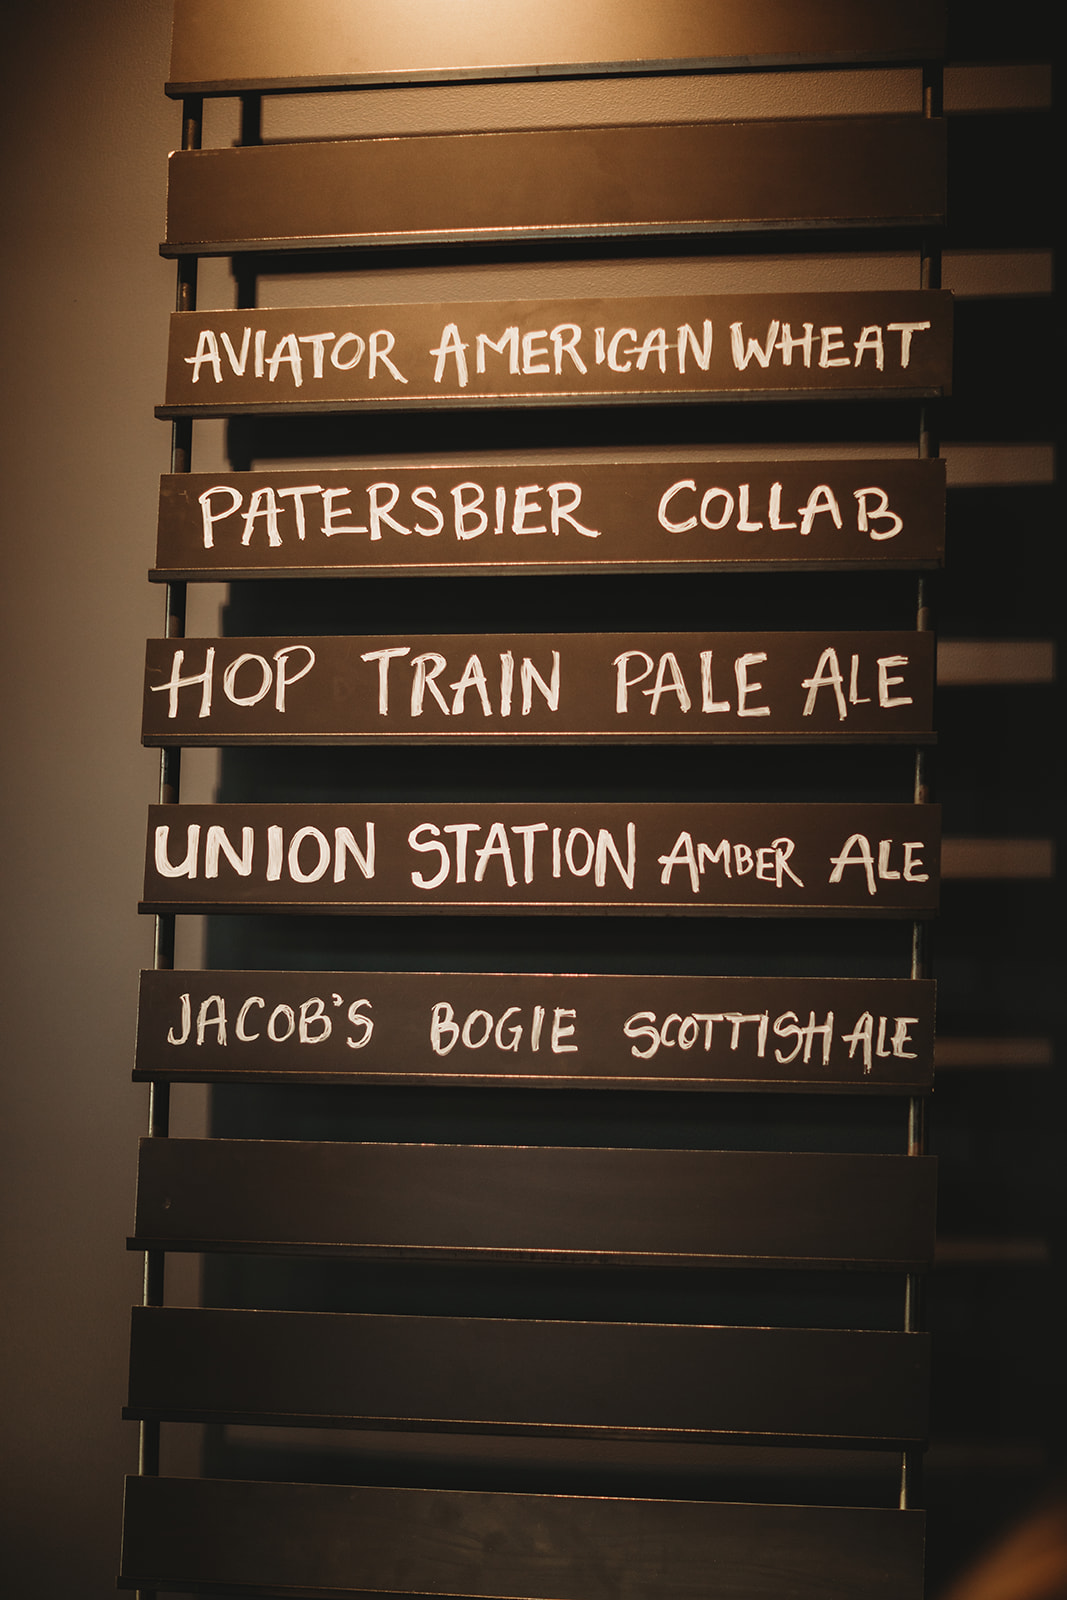 AVIATOR AMERICAN WHEAT
PATERSBIER COLLAB
HOP TRAIN PALE ALE
UNION STATION AMBER ALE
JACOB'S BOGIE SCOTTISH ALE